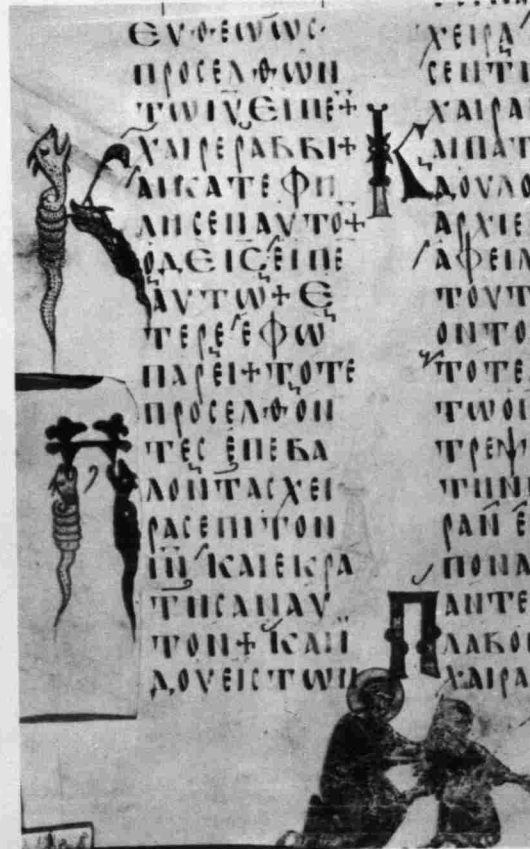 ΕΥΘΕΩC
ΠΡΟCΕΛΘΩΝ
ΤΩΙΥΕΙΠΕ+
ΧΑΙΡΕΡΑΒΒΙ+
ΚΑΙΚΑΤΕΦΙ
ΛΗCΕΝΑΥΤΟ+
ΟΔΕΙCΕΙΠΕ
ΑΥΤΩ+Ε
ΤΕΡΕΕΦΩ
ΠΑΡΕΙ+ΤΟΤΕ
ΠΡΟCΕΛΘΟΝ
ΤΕCΕΠΕΒΑ
ΛΟΝΤΑCΧΕΙ
ΡΑCΕΠΙΤΟΝ
ΙΝΚΑΙΕΚΡΑ
ΤΗCΑΝΑΥ
ΤΟΝ+ΚΑΙΙ
ΔΟΥΕΙCΤΩΝ
ΧΕΙΡΑ
CΕΝΤΗ
ΧΑΙΡΑ
ΚΑΙΠΑΤ
ΔΟΥΛΟ
ΑΡΧΙΕ
ΑΦΕΙΛ
ΤΟΥΤ
ΟΝΤΟ
ΤΟΤΕ
ΤΩΟΙ
ΤΡΕΨ
ΤΗΝ
ΡΑΝΕ
ΠΟΝΑ
ΠΑΝΤΕ
ΛΑΒΟ
ΧΑΙΡΑ